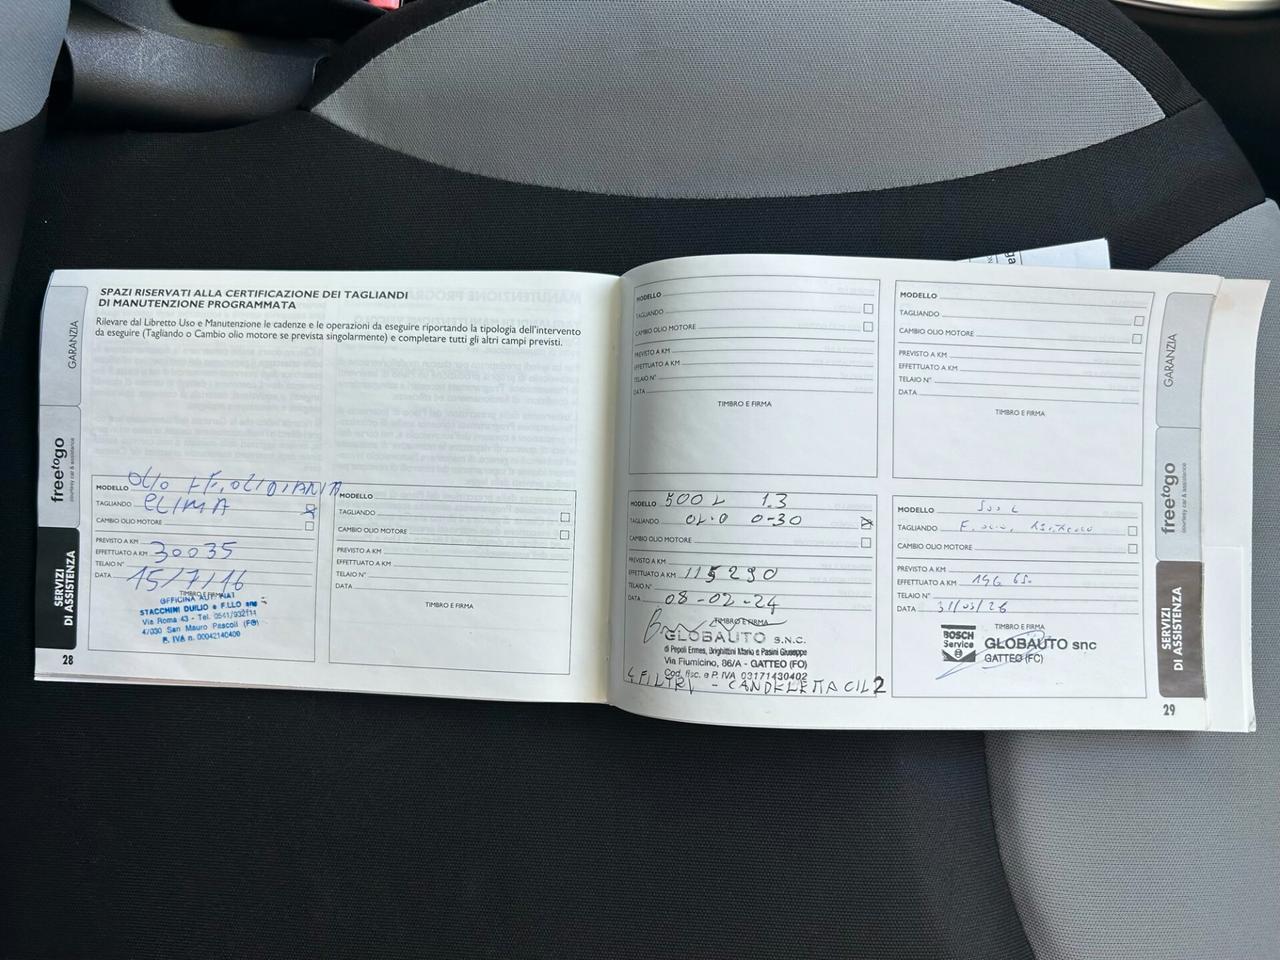 SPAZI RISERVATI ALLA CERTIFICAZIONE DEI TAGLIANDI
DI MANUTENZIONE PROGRAMMATA
Rilevare dal Libretto Uso e Manutenzione le cadenze e le operazioni da eseguire riportando la tipologia dell'intervento
da eseguire (Tagliando o Cambio olio motore se prevista singolarmente) e completare tutti gli altri campi previsti.
GARANZIA
freetogo
courtesy car & assistance
SERVIZI
DI ASSISTENZA
28
MODELLO OLIO
TAGLIANDO CLIMA
CAMBIO OLIO MOTORE
PREVISTO A KM
EFFETTUATO A KM 30035
TELAIO N°
DATA 15/7/16
TIMBRO E FIRMA
OFFICINA AUT. FIAT
STACCHINI DUILIO e F.LLO snc
Via Roma 43 - Tel. 0541/932111
47030 San Mauro Pascoli (FO)
P. IVA n. 00042140400
MODELLO
TAGLIANDO
CAMBIO OLIO MOTORE
PREVISTO A KM
EFFETTUATO A KM
TELAIO N°
DATA
TIMBRO E FIRMA
MODELLO
TAGLIANDO
CAMBIO OLIO MOTORE
PREVISTO A KM
EFFETTUATO A KM
TELAIO N°
DATA
TIMBRO E FIRMA
MODELLO
TAGLIANDO
CAMBIO OLIO MOTORE
PREVISTO A KM
EFFETTUATO A KM
TELAIO N°
DATA
TIMBRO E FIRMA
MODELLO 500 L 1.3
TAGLIANDO OLIO 0-30
CAMBIO OLIO MOTORE
PREVISTO A KM
EFFETTUATO A KM 115290
TELAIO N°
DATA 08-02-24
TIMBRO E FIRMA
GLOBAUTO S.N.C.
di Pepoli Ermes, Brighittini Mario e Pasini Giuseppe
Via Fiumicino, 86/A - GATTEO (FO)
Cod. fisc. e P. IVA 03171430402
4 FILTRI - CANDELETTA CIL 2
MODELLO 500 L
TAGLIANDO
CAMBIO OLIO MOTORE
PREVISTO A KM
EFFETTUATO A KM
TELAIO N°
DATA
TIMBRO E FIRMA
BOSCH
Service
GLOBAUTO snc
GATTEO (FC)
GARANZIA
freetogo
courtesy car & assistance
SERVIZI
DI ASSISTENZA
29